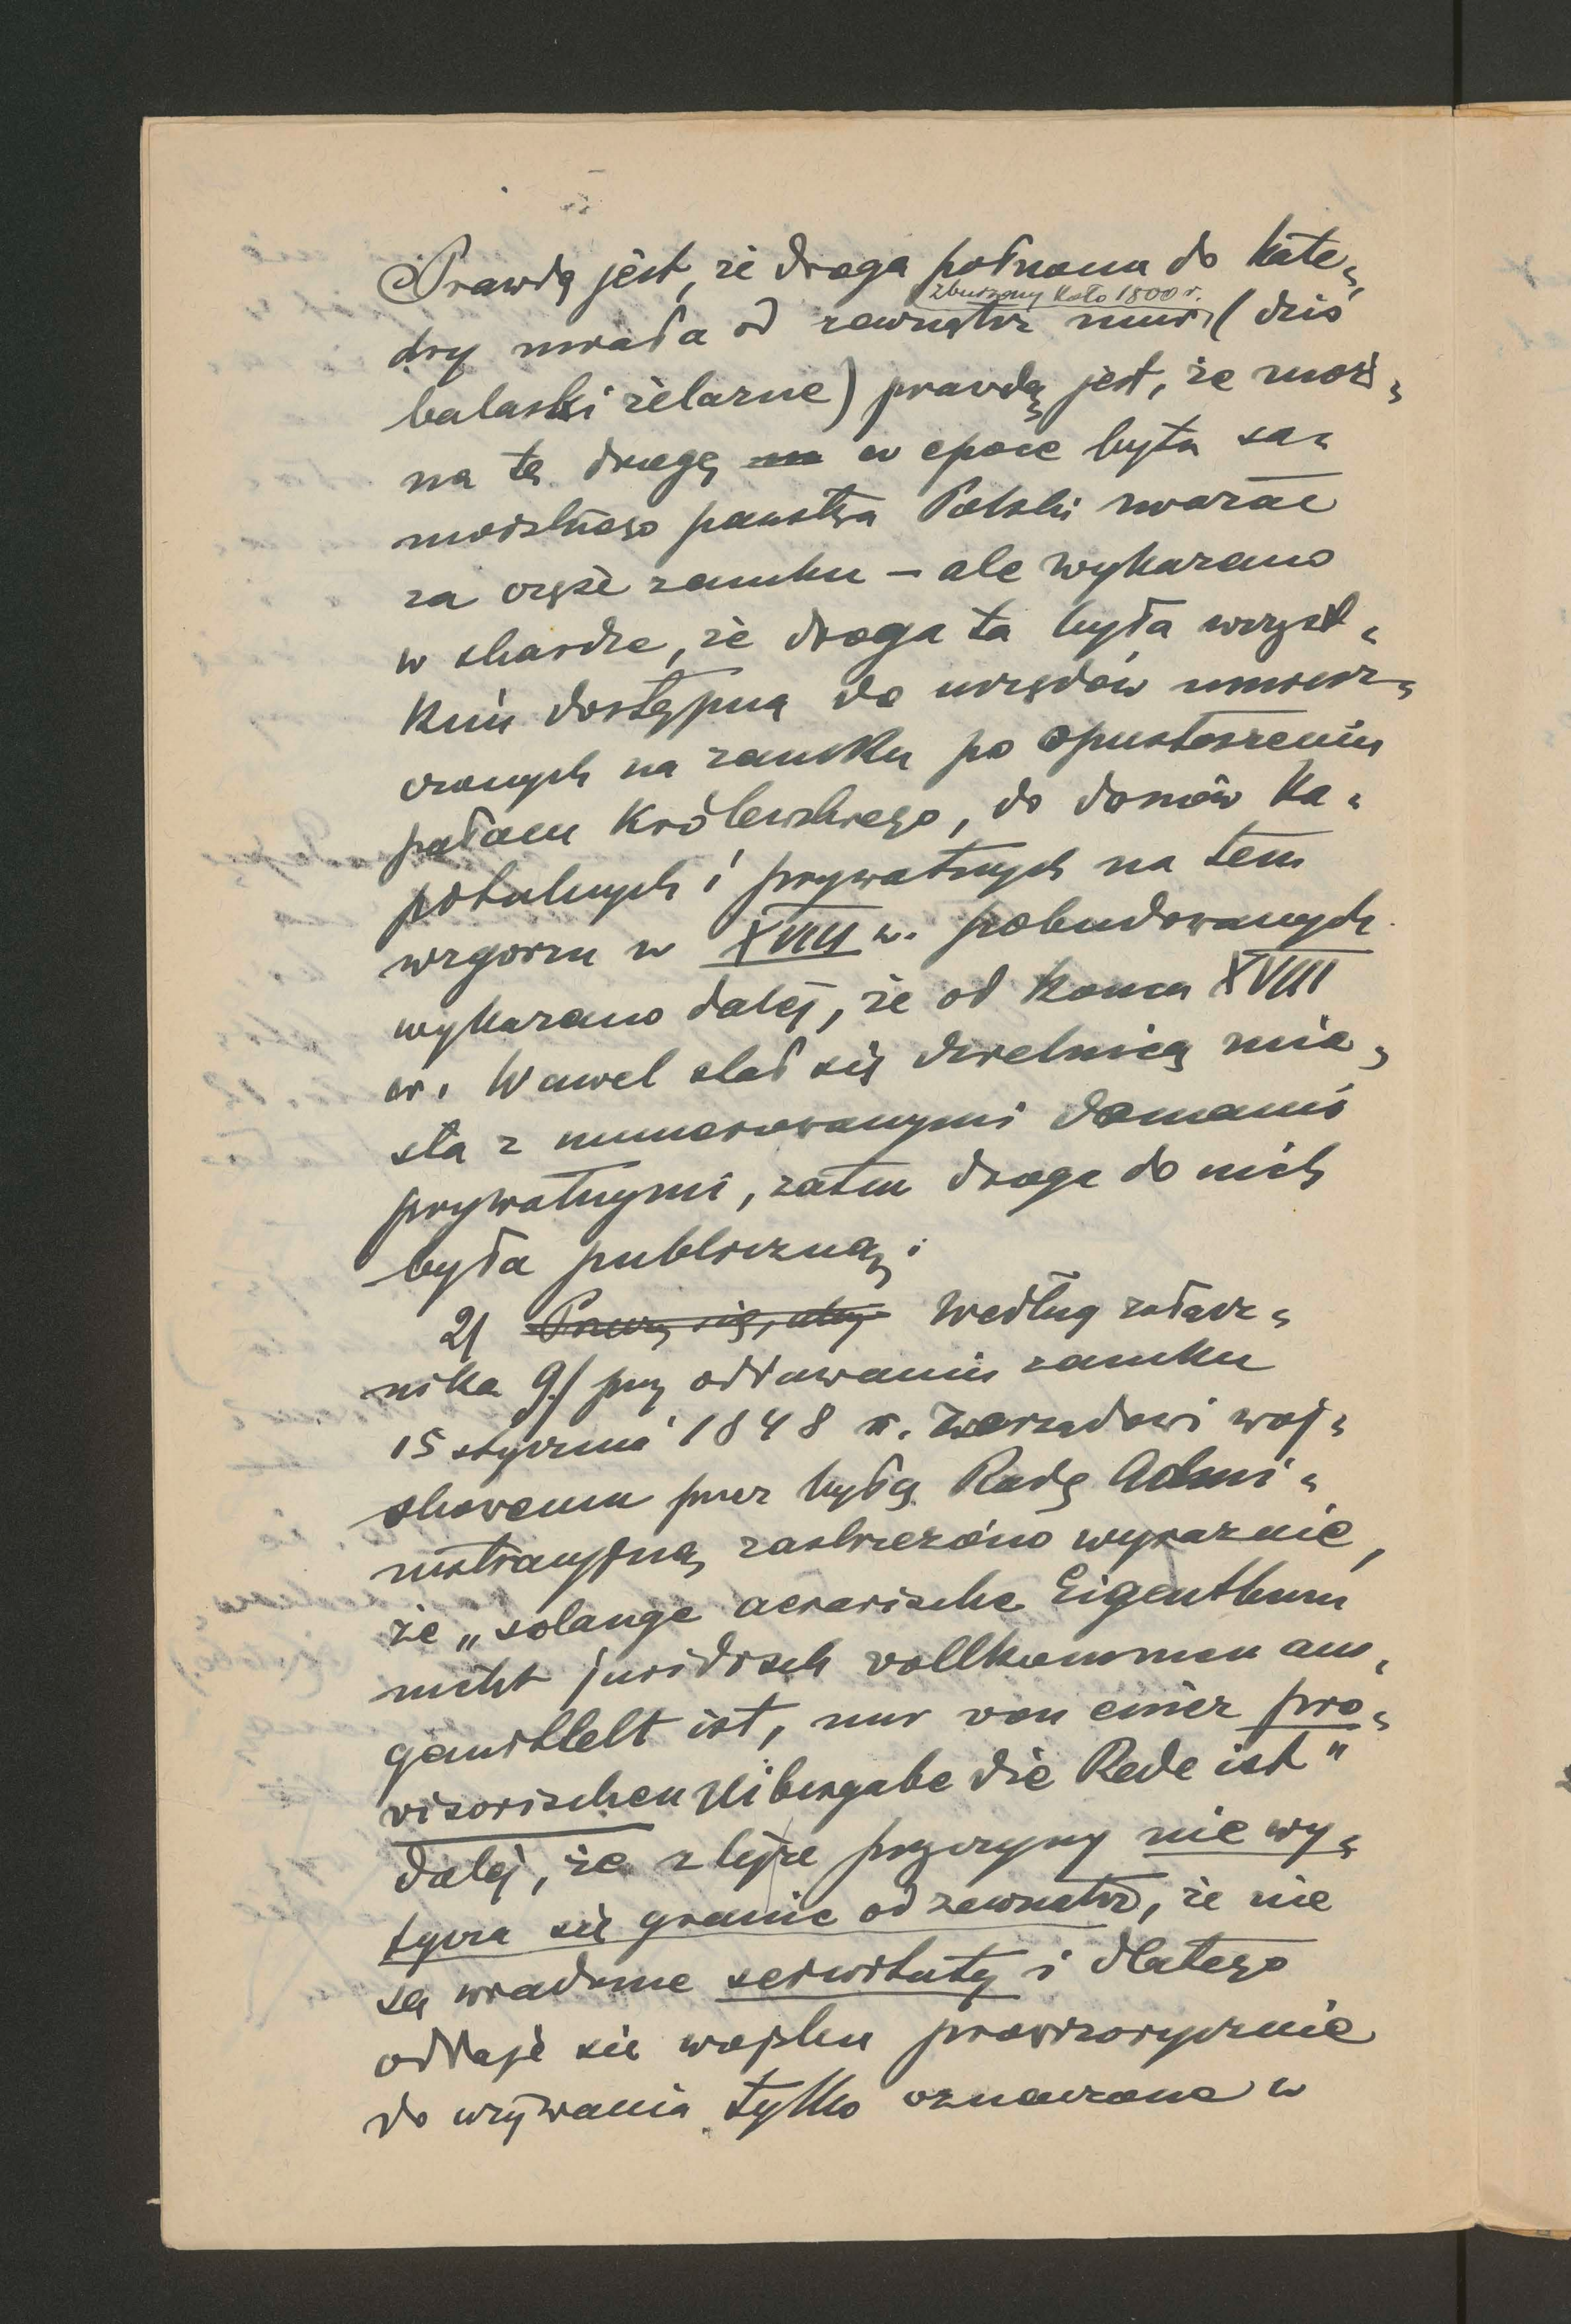 Prawdą jest, że droga północna do kate-
dry miała od zewnątrz mur (dziś
zburzony koło 1800 r.
balaski żelazne) prawdą jest, że moż-
na tę drogę w epoce bytu sa-
moistnego państwa Polski uważać
za część zamku – ale wykazano
w skardze, że droga ta była wszyst-
kim dostępną do urzędów umiesz-
czonych na zamku po opustoszeniu
pałacu Królewskiego, do domów ka-
pitulnych i prywatnych na tem
wzgórzu w XVIII w. pobudowanych
wykazano dalej, że od końca XVIII
w. Wawel stał się dzielnicą mia-
sta z numerowanymi domami
prywatnymi, zatem droga do nich
była publiczną;
2/ Według załącz-
nika 9/ przy oddawaniu zamku
15 stycznia 1848 r. Zarządowi woj-
skowemu przez byłą Radę Admi-
nistracyjną zastrzeżono wyraźnie,
że „solange aerarische Eigenthum
nicht juridisch vollkommen aus-
gemittelt ist, nur von einer pro-
visorischen Uibergabe die Rede ist"
dalej, że z tejże przyczyny nie wy-
tycza się granic od zewnątrz, że nie
są wiadome serwituty i dlatego
oddaje się wojsku prowizorycznie
do używania tylko oznaczone w